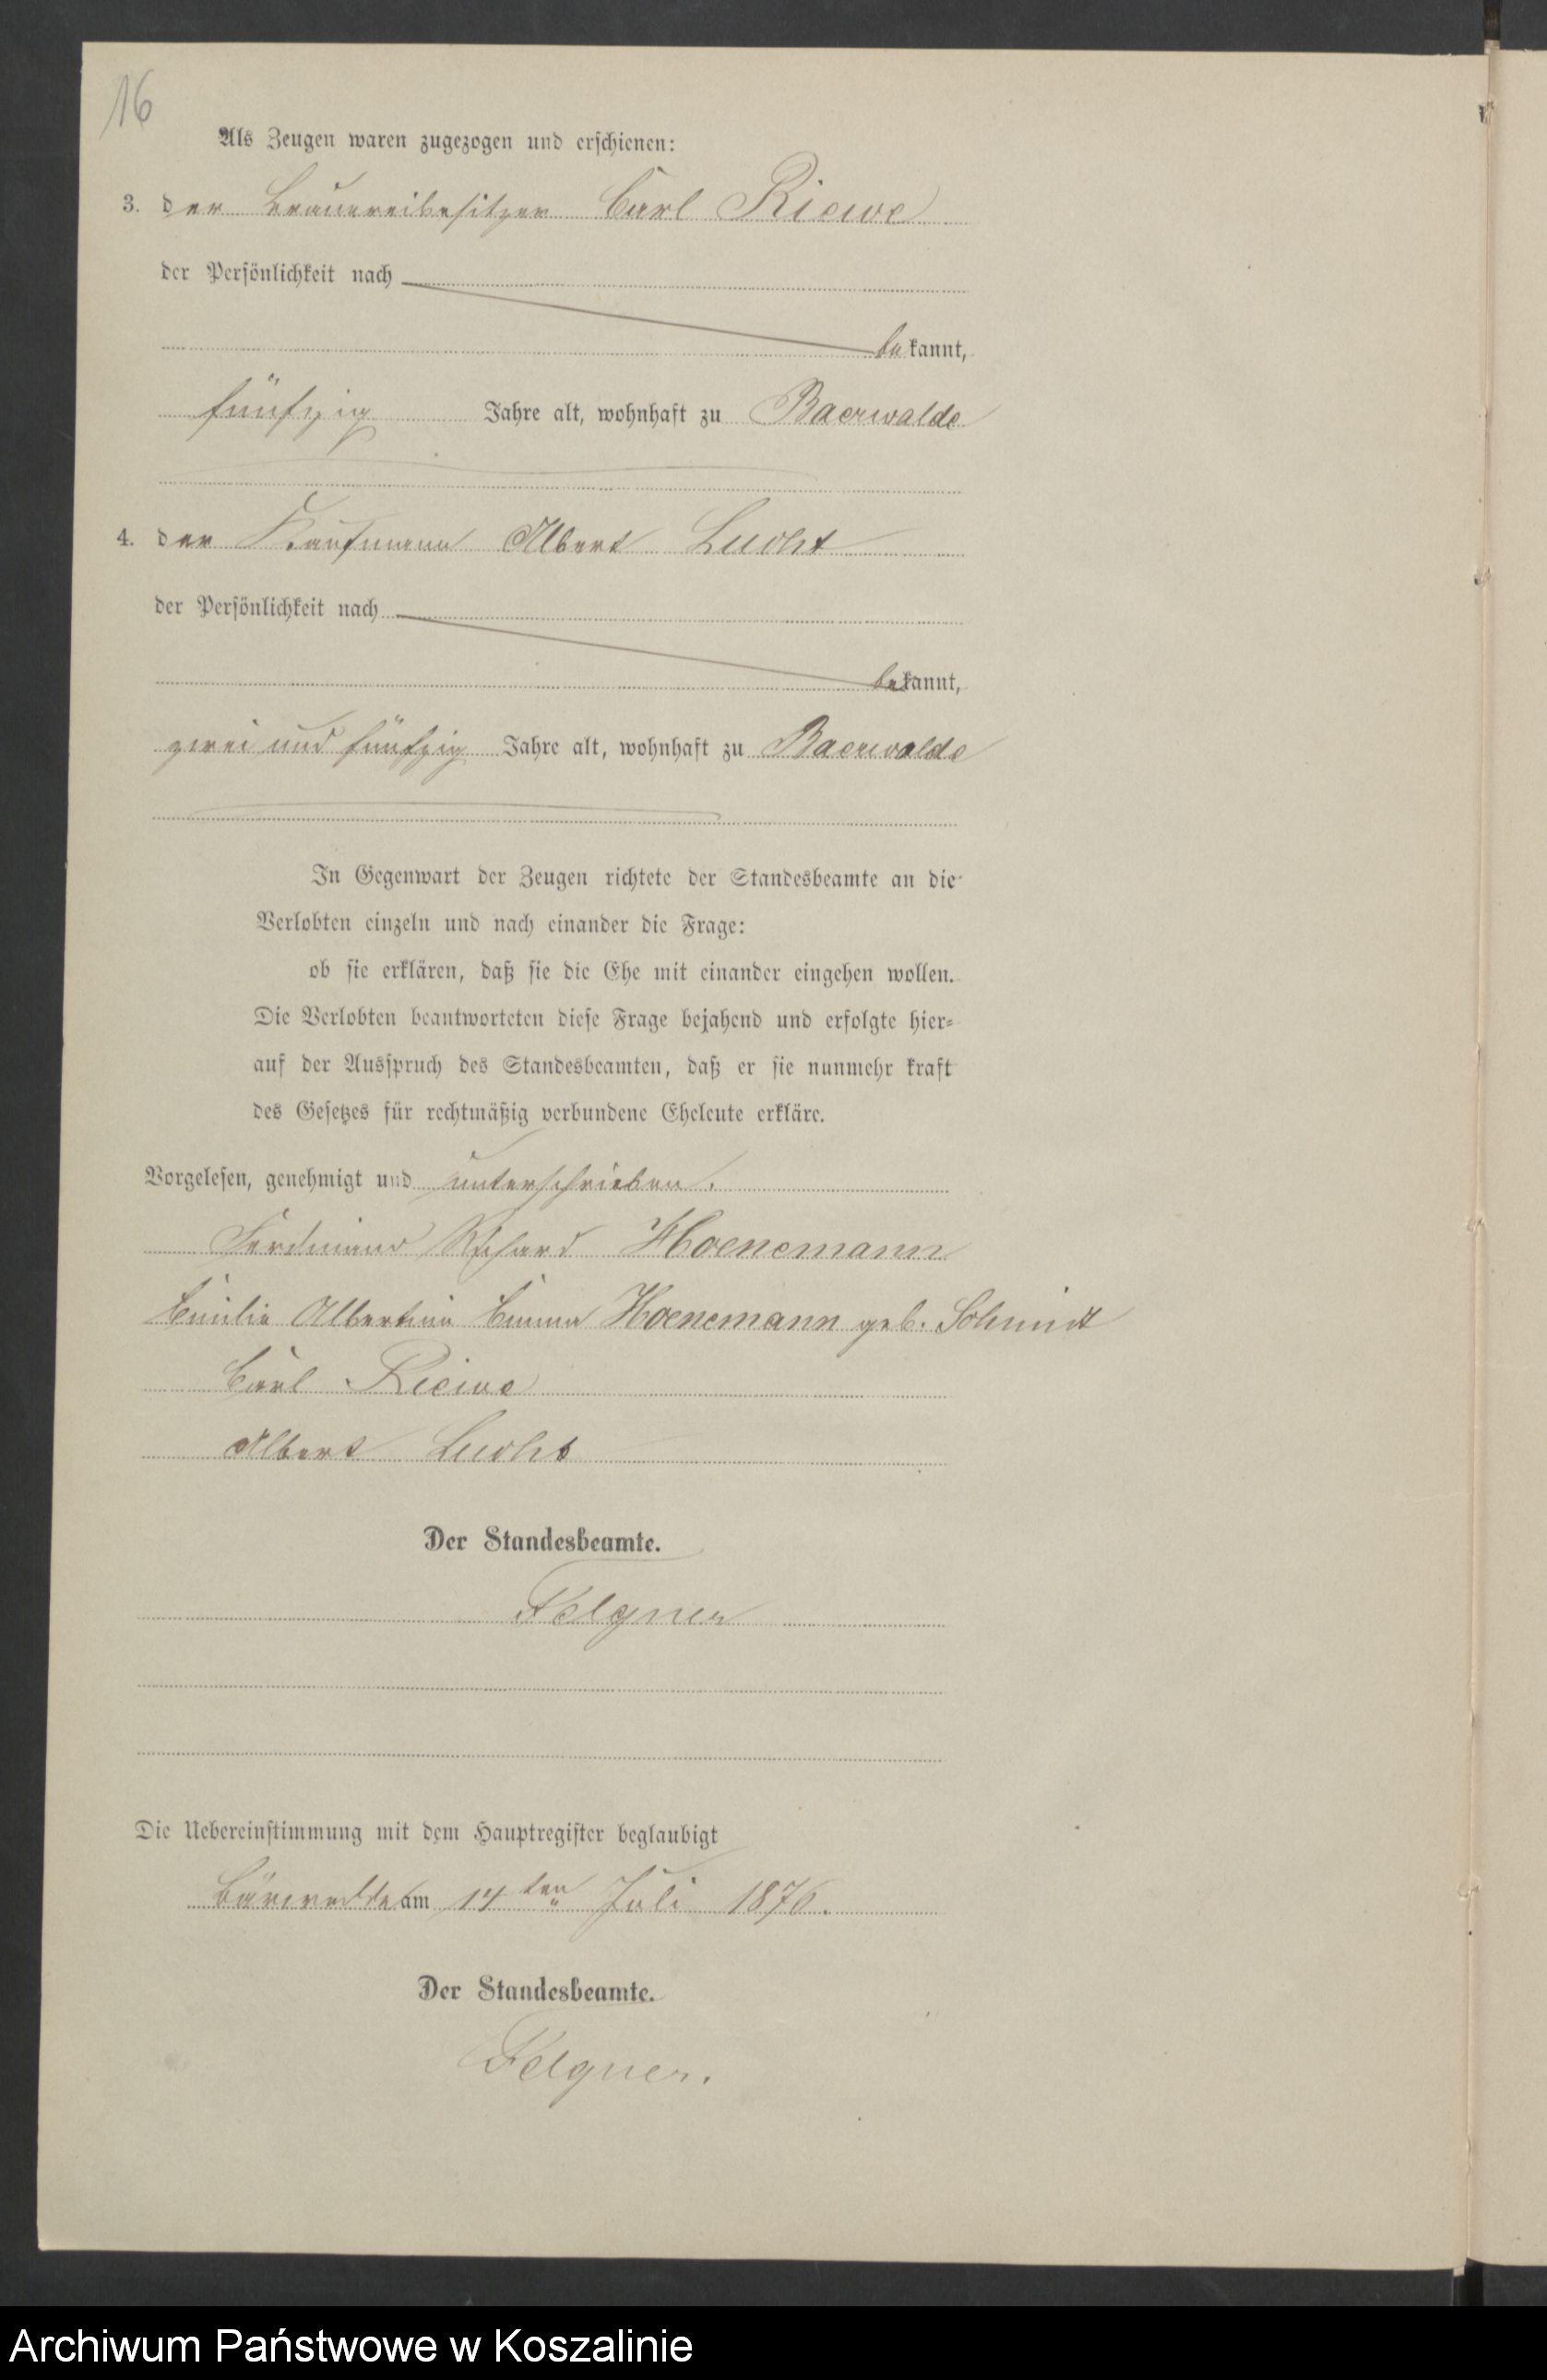 16
Als Zeugen waren zugezogen und erschienen:
3. der Brauereibesitzer Carl Riewe
der Persönlichkeit nach
bekannt,
fünfzig Jahre alt, wohnhaft zu Baerwalde
4. der Kaufmann Albert Lucht
der Persönlichkeit nach
bekannt,
zwei und fünfzig Jahre alt, wohnhaft zu Baerwalde
In Gegenwart der Zeugen richtete der Standesbeamte an die
Verlobten einzeln und nach einander die Frage:
ob sie erklären, daß sie die Ehe mit einander eingehen wollen.
Die Verlobten beantworteten diese Frage bejahend und erfolgte hier-
auf der Ausspruch des Standesbeamten, daß er sie nunmehr kraft
des Gesetzes für rechtmäßig verbundene Eheleute erkläre.
Vorgelesen, genehmigt und unterschrieben.
Ferdinand Richard Hoenemann
Emilie Albertine Emma Hoenemann geb. Schmidt
Carl Riewe
Albert Lucht
Der Standesbeamte.
Felgner
Die Uebereinstimmung mit dem Hauptregister beglaubigt
Bärwalde am 14ten Juli 1876.
Der Standesbeamte.
Felgner.
Archiwum Państwowe w Koszalinie